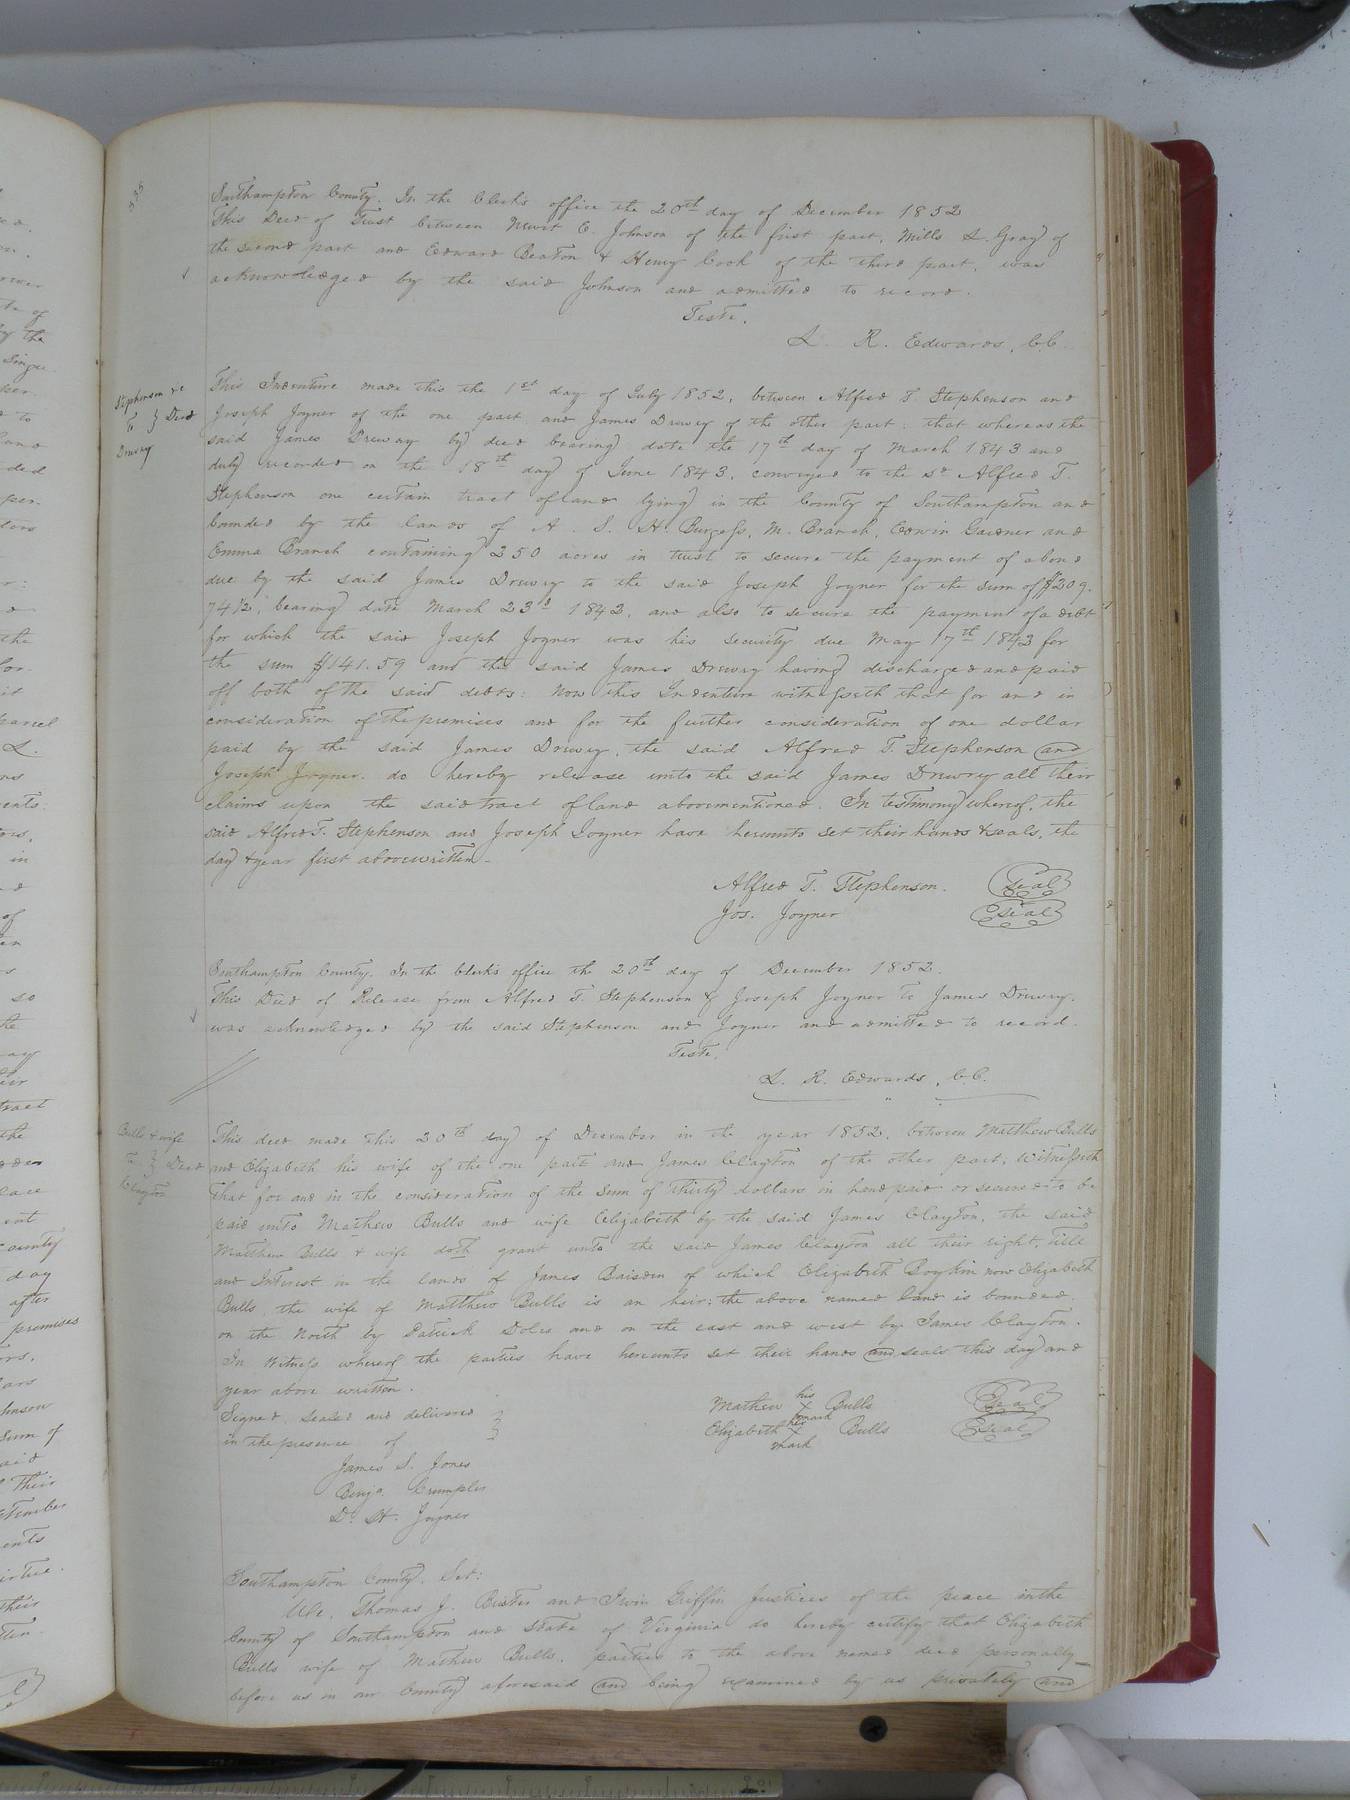 535
Southampton County. In the Clerk's office the 20th day of December 1852
This Deed of Trust between Newit C. Johnson of the first part, Mills L. Gray of
the second part and Edward Beaton & Henry Cook of the third part, was
acknowledged by the said Johnson and admitted to record.
Teste.
L. R. Edwards, C.C.
Stephenson &c
To } Deed
Drewry
This Indenture made this the 1st day of July 1852, between Alfred T. Stephenson and
Joseph Joyner of the one part and James Drewry of the other part: that whereas the
said James Drewry by deed bearing date the 17th day of March 1843 and
duly recorded on the 18th day of June 1843, conveyed to the sd Alfred T.
Stephenson one certain tract of land lying in the County of Southampton and
bounded by the lands of A. S. H. Burgess, M. Branch, Edwin Gardner and
Emma Branch containing 250 acres in trust to secure the payment of a bond
due by the said James Drewry to the said Joseph Joyner for the sum of $209.
74 1/2, bearing date March 23d 1842, and also to secure the payment of a debt
for which the said Joseph Joyner was his security due May 17th 1843 for
the sum $141.59 and the said James Drewry having discharged and paid
off both of the said debts: Now this Indenture witnesseth that for and in
consideration of the premises and for the further consideration of one dollar
paid by the said James Drewry, the said Alfred T. Stephenson and
Joseph Joyner. do hereby release unto the said James Drewry all their
claims upon the said tract of land abovementioned. In testimony whereof, the
said Alfred T. Stephenson and Joseph Joyner have hereunto set their hands & seals, the
day & year first abovewritten.
Alfred T. Stephenson. Seal
Jos. Joyner Seal
Southampton County. In the Clerk's office the 20th day of December 1852.
This Deed of Release from Alfred T. Stephenson & Joseph Joyner to James Drewry.
was acknowledged by the said Stephenson and Joyner and admitted to record.
Teste,
L. R. Edwards, C.C.
Bulls & wife
To } Deed
Clayton
This deed made this 20th day of December in the year 1852, between Matthew Bulls
and Elizabeth his wife of the one part and James Clayton of the other part, Witnesseth
That for and in the consideration of the sum of Thirty dollars in hand paid or secured to be
paid unto Mathew Bulls and wife Elizabeth by the said James Clayton, the said
Matthew Bulls & wife doth grant unto the said James Clayton all their right, title
and Interest in the lands of James Baisden of which Elizabeth Boykin now Elizabeth
Bulls the wife of Matthew Bulls is an heir: the above named land is bounded.
on the North by Patrick Doles and on the east and west by James Clayton.
In Witness whereof the parties have hereunto set their hands and seals this day and
year above written.
Signed, sealed and delivered
in the presence of
James S. Jones
Benja. Crumpler
D. H. Joyner
Mathew his X mark Bulls Seal
Elizabeth her X mark Bulls Seal
Southampton County. Sct:
We, Thomas J. Bister and Irvin Griffin Justices of the peace in the
County of Southampton and State of Virginia do hereby certify that Elizabeth
Bulls wife of Mathew Bulls, parties to the above named deed personally
before us in our County aforesaid and being examined by us privately and